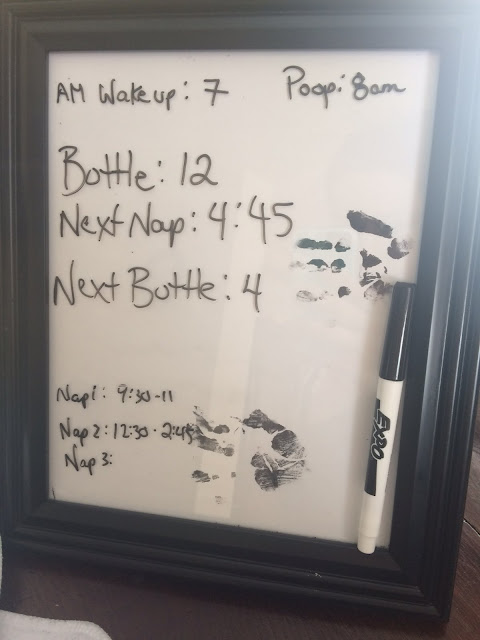 AM Wake up: 7
Poop: 8am
Bottle: 12
Next Nap: 4:45
Next Bottle: 4
Nap 1: 9:30-11
Nap 2: 12:30-2:45
Nap 3:
EXPO